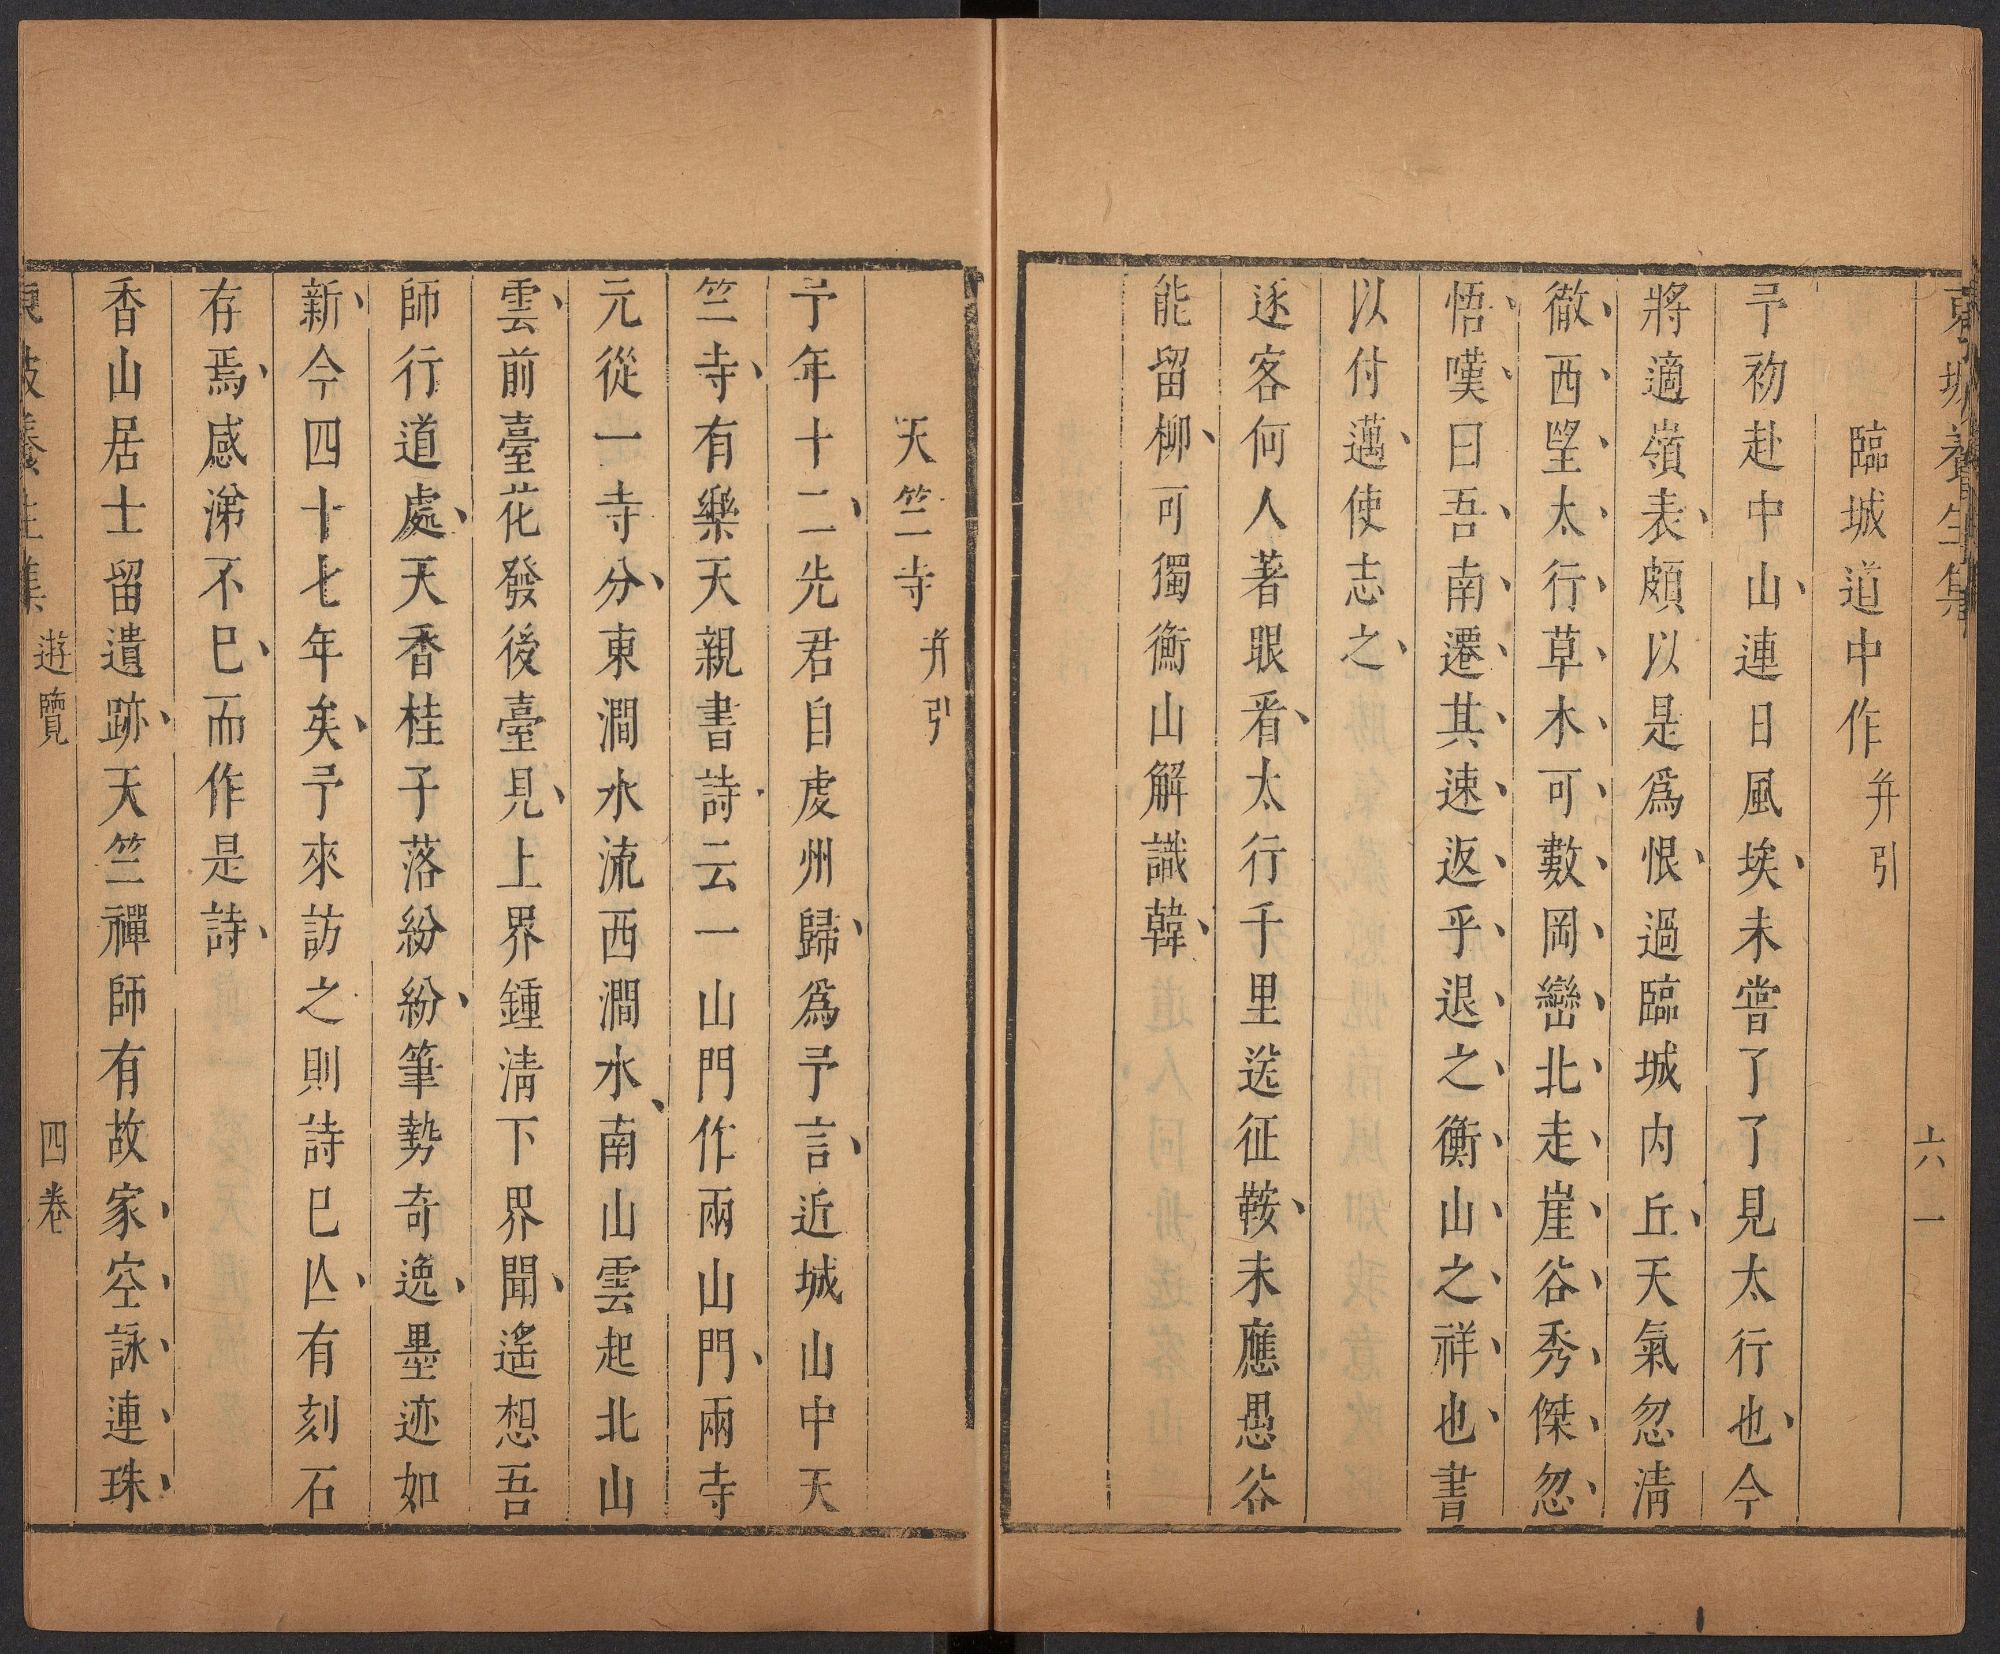 東坡養生集
六一
臨城道中作幷引
予初赴中山連日風埃未嘗了了見太行也今
將適嶺表頗以是爲恨過臨城内丘天氣忽清
徹西望太行草木可數岡巒北走崖谷秀傑忽
悟嘆曰吾南遷其速返乎退之衡山之祥也書
以付邁使志之
逐客何人著眼看太行千里送征鞍未應愚谷
能留柳可獨衡山解識韓
天竺寺幷引
予年十二先君自虔州歸爲予言近城山中天
竺寺有樂天親書詩云一山門作兩山門兩寺
元從一寺分東澗水流西澗水南山雲起北山
雲前臺花發後臺見上界鍾清下界聞遙想吾
師行道處天香桂子落紛紛筆勢奇逸墨迹如
新今四十七年矣予來訪之則詩已亾有刻石
存焉感涕不已而作是詩
香山居士留遺跡天竺禪師有故家空詠連珠
東坡養生集 遊覽 四卷